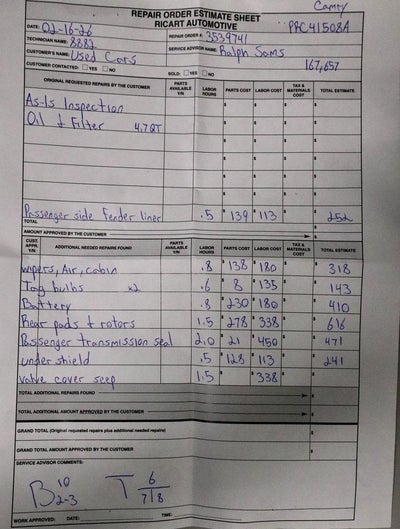 Camry
REPAIR ORDER ESTIMATE SHEET
RICART AUTOMOTIVE
PRC41508A
DATE: 02-16-26
REPAIR ORDER # 3539741
TECHNICIAN NAME: 8882
SERVICE ADVISOR NAME: Ralph Sams
CUSTOMER'S NAME: Used Cars
167,657
CUSTOMER CONTACTED: YES NO
SOLD: YES NO
ORIGINAL REQUESTED REPAIRS BY THE CUSTOMER PARTS AVAILABLE Y/N LABOR HOURS PARTS COST LABOR COST TAX & MATERIALS COST TOTAL ESTIMATE
As-Is Inspection $ $ $ $
Oil & Filter 4.7QT $ $ $ $
Passenger side Fender liner .5 $ 139 $ 113 $ $ 252
TOTAL
AMOUNT APPROVED BY THE CUSTOMER $
CUST. APPR. Y/N ADDITIONAL NEEDED REPAIRS FOUND PARTS AVAILABLE Y/N LABOR HOURS PARTS COST LABOR COST TAX & MATERIALS COST TOTAL ESTIMATE
wipers, Air, cabin .8 $ 138 $ 180 $ $ 318
Tag bulbs x2 .6 $ 8 $ 135 $ $ 143
Battery .8 $ 230 $ 180 $ $ 410
Rear pads & rotors 1.5 $ 278 $ 338 $ $ 616
Passenger transmission seal 2.0 $ 21 $ 450 $ $ 471
under shield .5 $ 128 $ 113 $ $ 241
valve cover seep 1.5 $ $ 338 $ $
TOTAL ADDITIONAL REPAIRS FOUND $
TOTAL ADDITIONAL AMOUNT APPROVED BY THE CUSTOMER $
GRAND TOTAL (Original requested repairs plus additional needed repairs) $
GRAND TOTAL AMOUNT APPROVED BY THE CUSTOMER $
SERVICE ADVISOR COMMENTS:
B 10
2-3
T 6
7/8
WORK APPROVED: DATE: TIME: